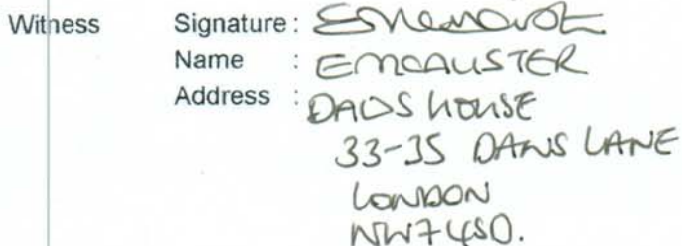 Witness Signature :
Name : EMCALISTER
Address : DAWS HOUSE
33-35 DAWS LANE
LONDON
NW7 4SD.